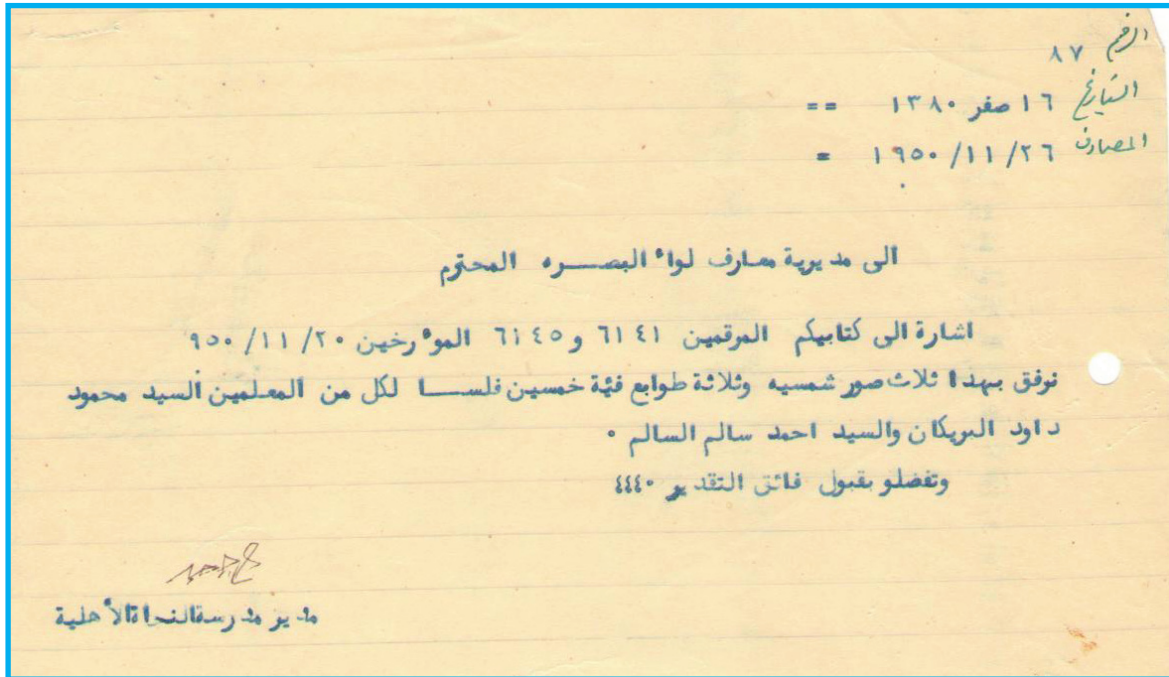 الرقم ٨٧
التاريخ ١٦ صفر ١٣٨٠ ==
المصادف ١٩٥٠/١١/٢٦ =
الى مديرية معارف لواء البصـــره المحترم
اشارة الى كتابيكم المرقمين ٦١٤١ و ٦١٤٥ الموءرخين ٩٥٠/١١/٢٠
نرفق بهذا ثلاث صور شمسيه وثلاثة طوابع فئة خمسين فلســـا لكل من المعلمين السيد محمود
داود البريكان والسيد احمد سالم السالم ٠
وتفضلو بقبول فائق التقدير ٤٤٤٠
مدير مدرسةالنجاةالأهلية